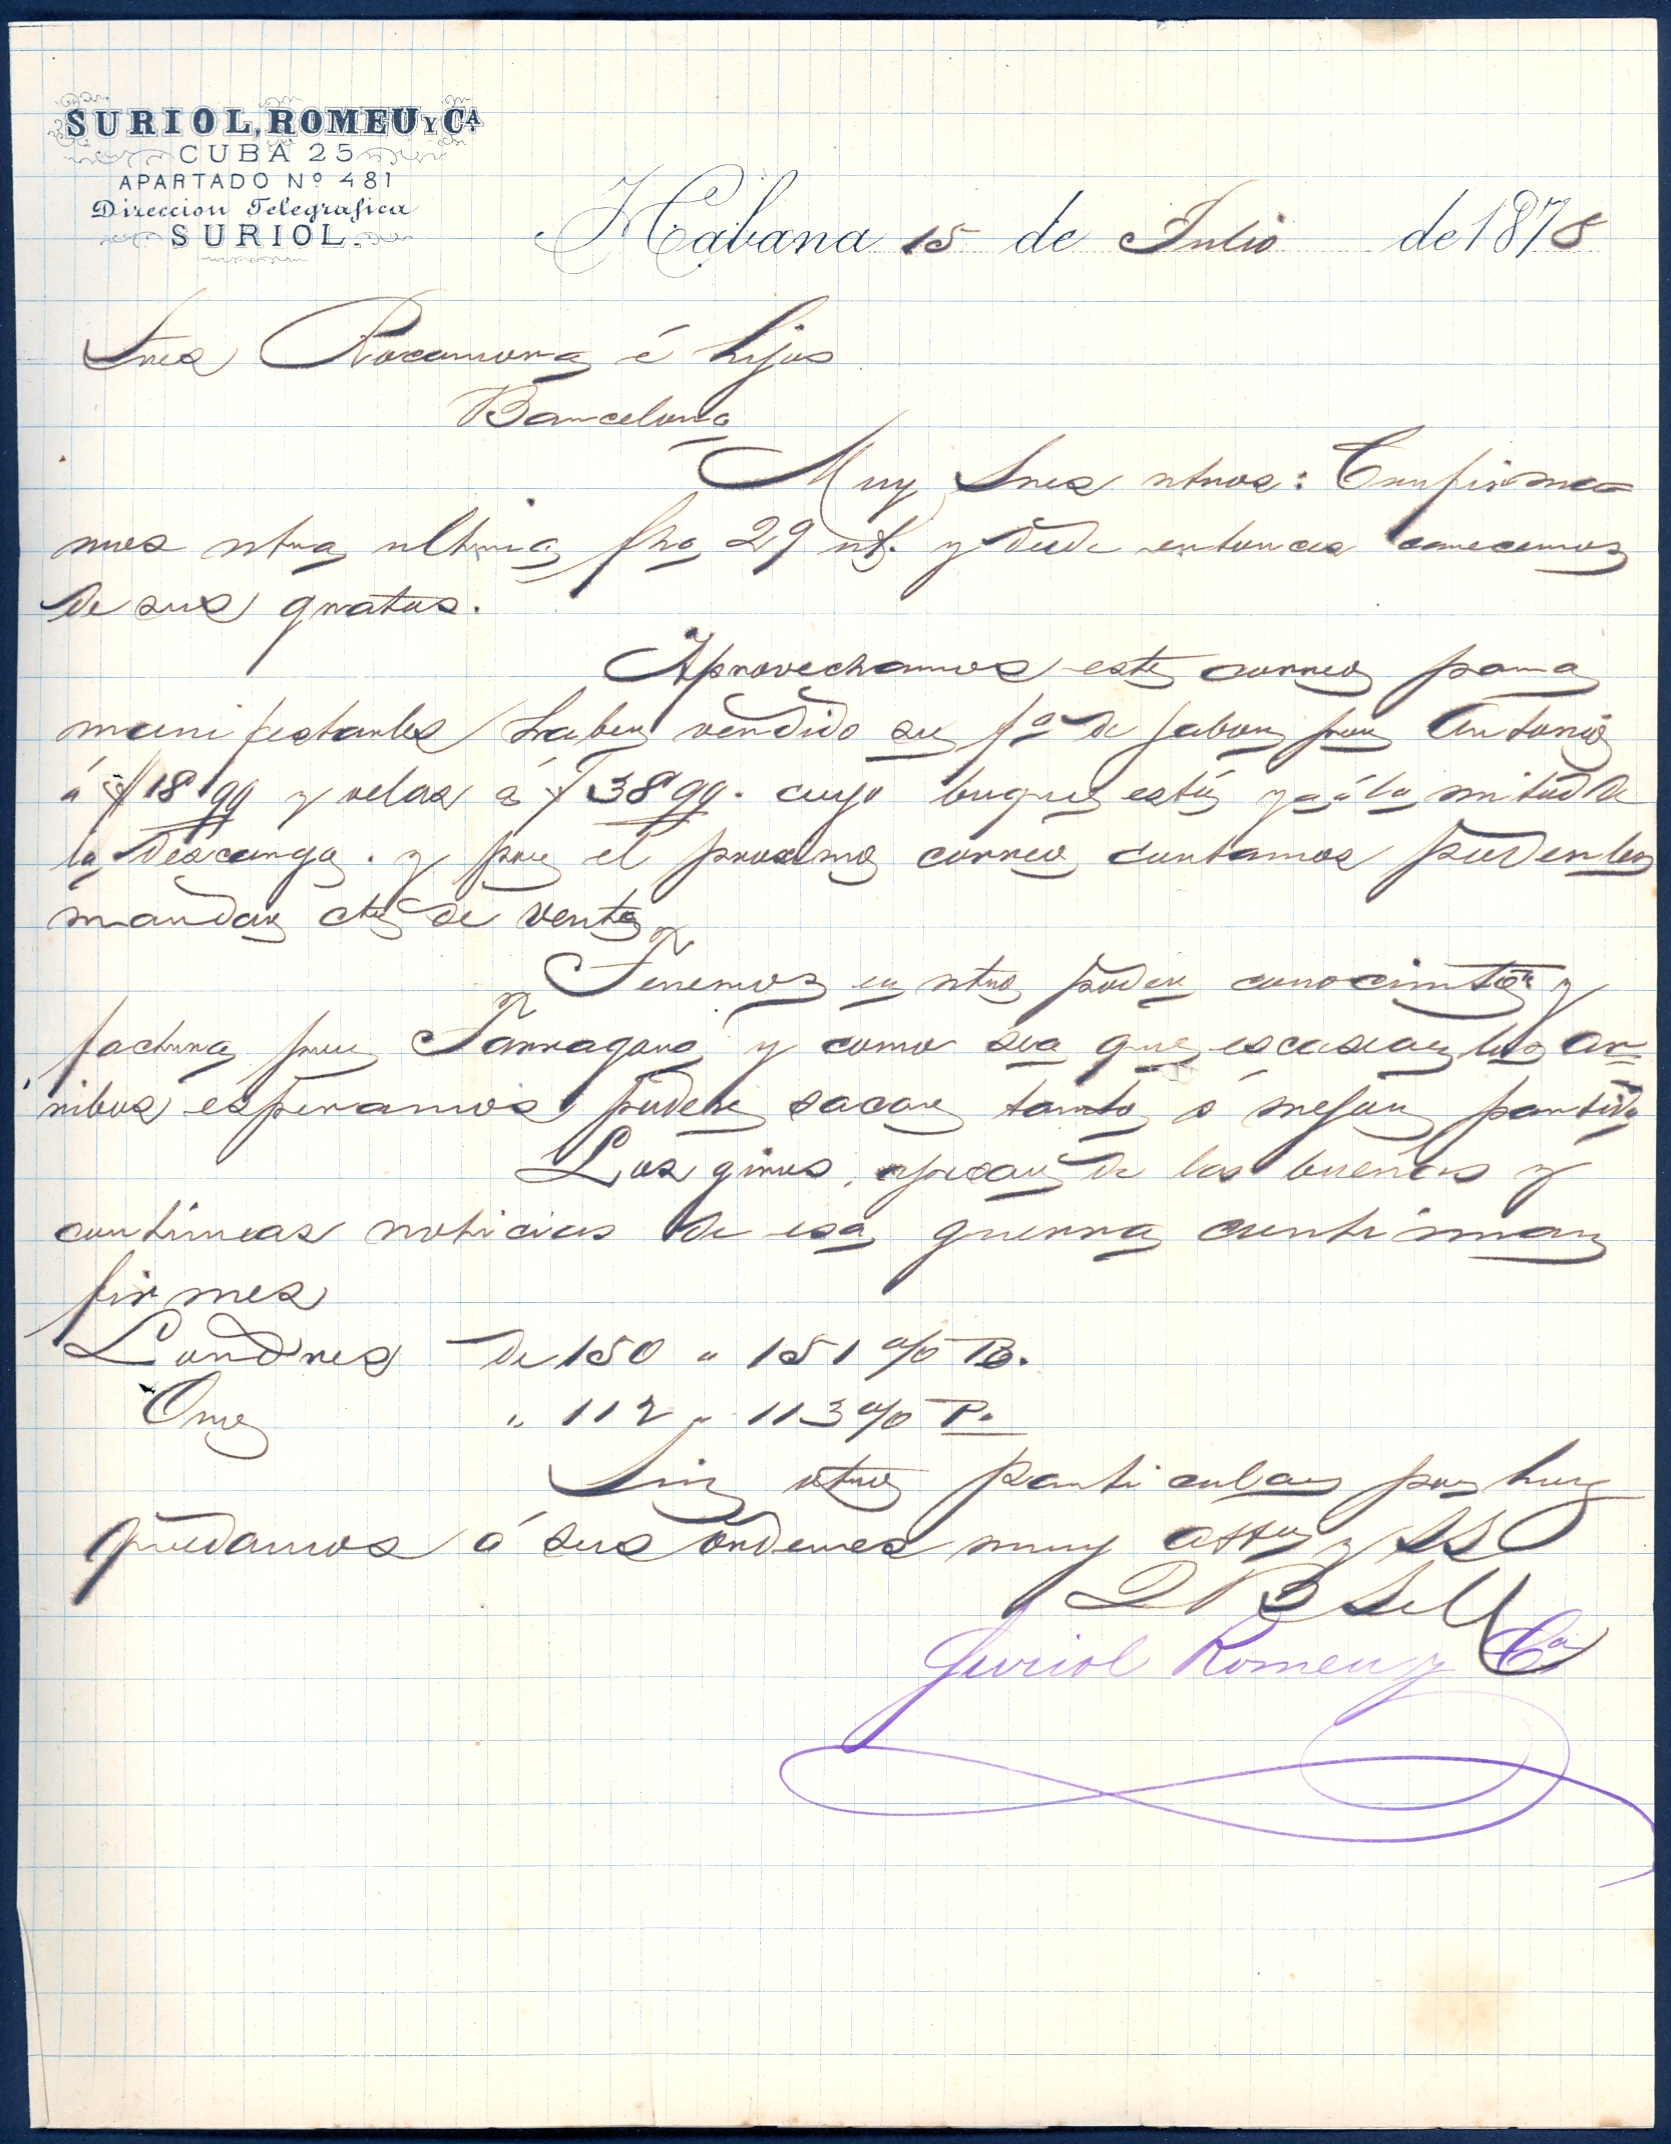 SURIOL, ROMEU Y Cᴬ.
CUBA 25
APARTADO Nº 481
Direccion Telegrafica
SURIOL.
Habana 15 de Julio de 1878
Sres Rocamora é hijos
Barcelona
Muy Sres ntros: Confirma=
mos ntra ultima fha 29 ut. y desde entonces carecemos
de sus gratas.
Aprovechamos este correo para
manifestarles haber vendido su fª de jabon por Antonio
á $ 18 qq y velas á $ 38 qq. cuyo buque está ya á la mitad de
la descarga. y por el proximo correo contamos poderles
mandar cta de venta
Tenemos en ntro poder conocimto y
factura por Tarragona y como sea que escasean los ar=
ribos esperamos poder sacar tanto ó mejor partido
Los giros, apesar de las buenas y
contínuas noticias de esa guerra continuan
firmes
Londres de 150 a 151 % P.
Oro " 112 " 113 % P.
Sin otro particular por hoy
quedamos á sus ordenes muy attos y SS
Q B S M
Suriol Romeu y Cª